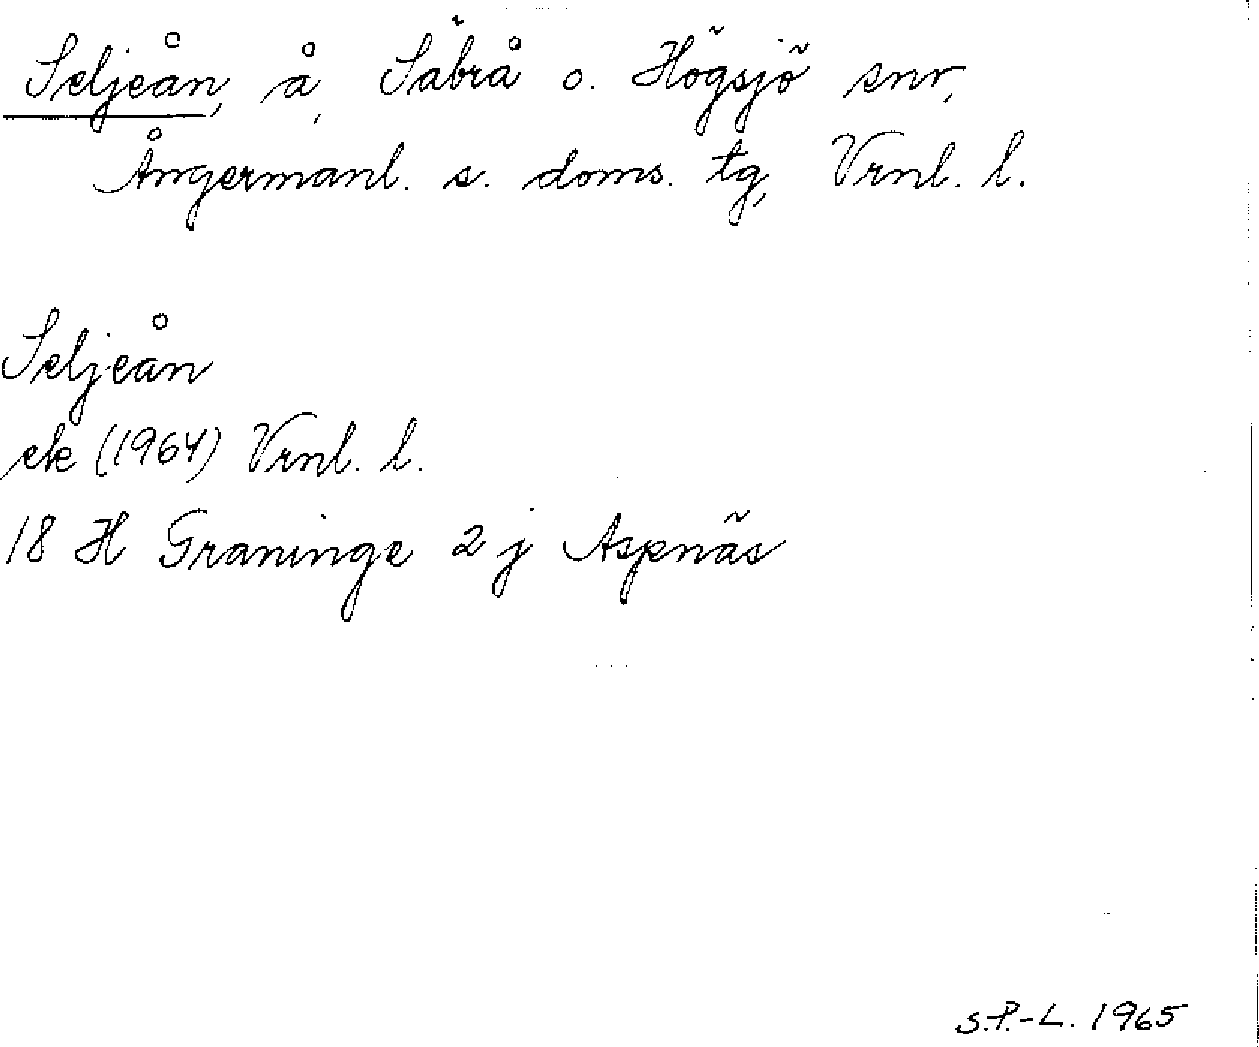 Seljeån, å, Säbrå o. Högsjö snr,
Ångermanl. s. doms. tg, Vrnl. l.
Seljeån
ek (1964) Vrnl. l.
18 H Graninge 2 j Aspnäs
S.P.-L. 1965